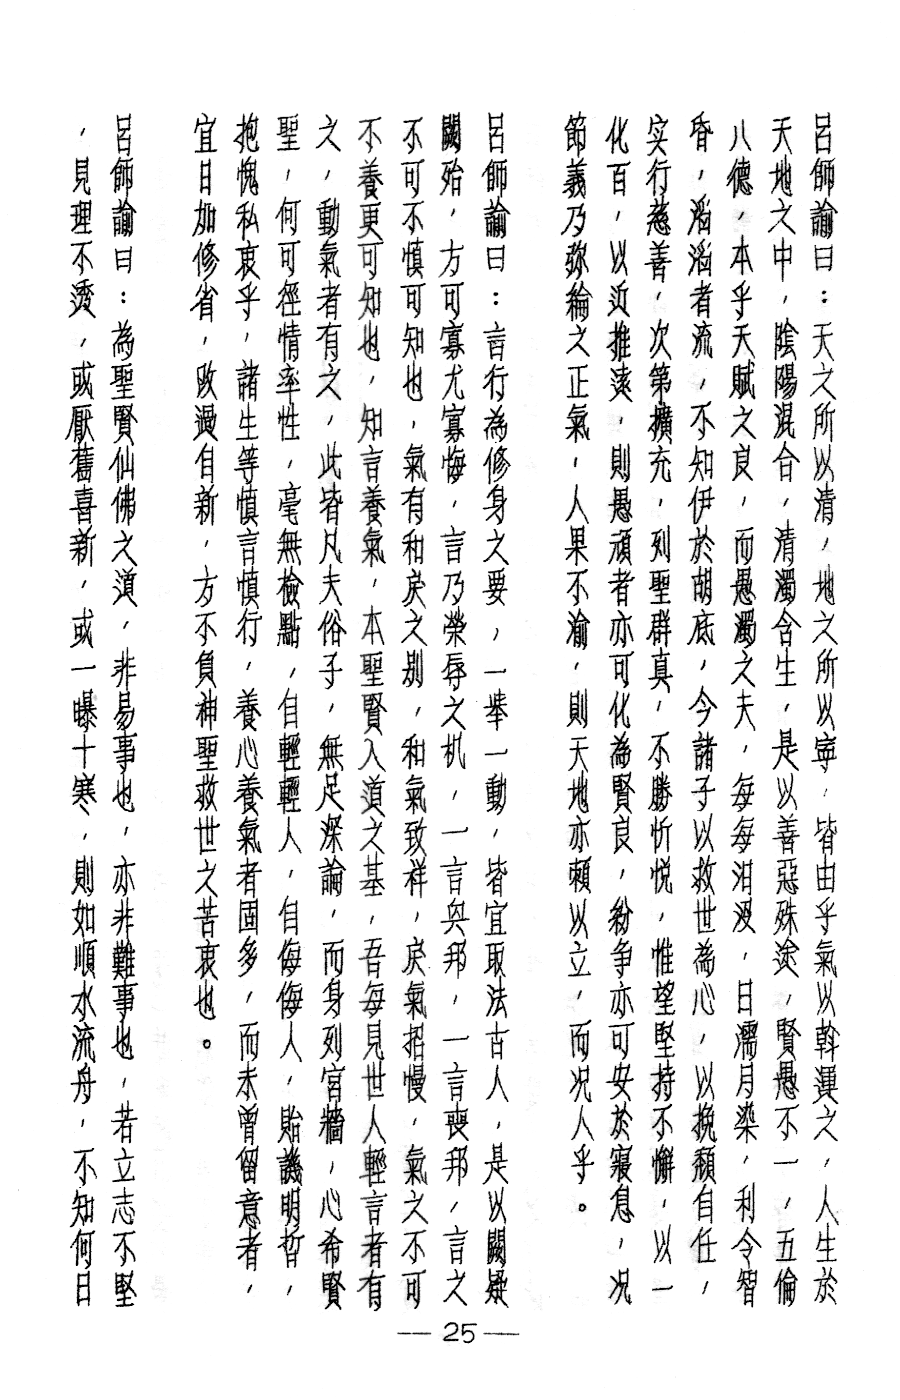 呂師諭曰：天之所以清，地之所以寧，皆由乎氣以斡運之，人生於
天地之中，陰陽混合，清濁含生，是以善惡殊途，賢愚不一，五倫
八德，本乎天賦之良，而愚濁之夫，每每汨沒，日濡月染，利令智
昏，滔滔者流，不知伊於胡底，今諸子以救世為心，以挽頹自任，
实行慈善，次第擴充，列聖群真，不勝忻悦，惟望堅持不懈，以一
化百，以近推遠，則愚頑者亦可化為賢良，紛爭亦可安於寢息，况
節義乃弥綸之正氣，人果不渝，則天地亦賴以立，而况人乎。
呂師諭曰：言行為修身之要，一举一動，皆宜取法古人，是以闕疑
闕殆，方可寡尤寡悔，言乃榮辱之机，一言兴邦，一言喪邦，言之
不可不慎可知也，氣有和戾之别，和氣致祥，戾氣招慢，氣之不可
不養更可知也，知言養氣，本聖賢入道之基，吾每見世人輕言者有
之，動氣者有之，此皆凡夫俗子，無足深論，而身列宮牆，心希賢
聖，何可徑情率性，毫無檢點，自輕輕人，自侮侮人，貽譏明哲，
抱愧私衷乎，諸生等慎言慎行，養心養氣者固多，而未曾留意者，
宜日加修省，改過自新，方不負神聖救世之苦衷也。
呂師諭曰：為聖賢仙佛之道，非易事也，亦非難事也，若立志不堅
，見理不透，或厭舊喜新，或一曝十寒，則如順水流舟，不知何日
— 25 —